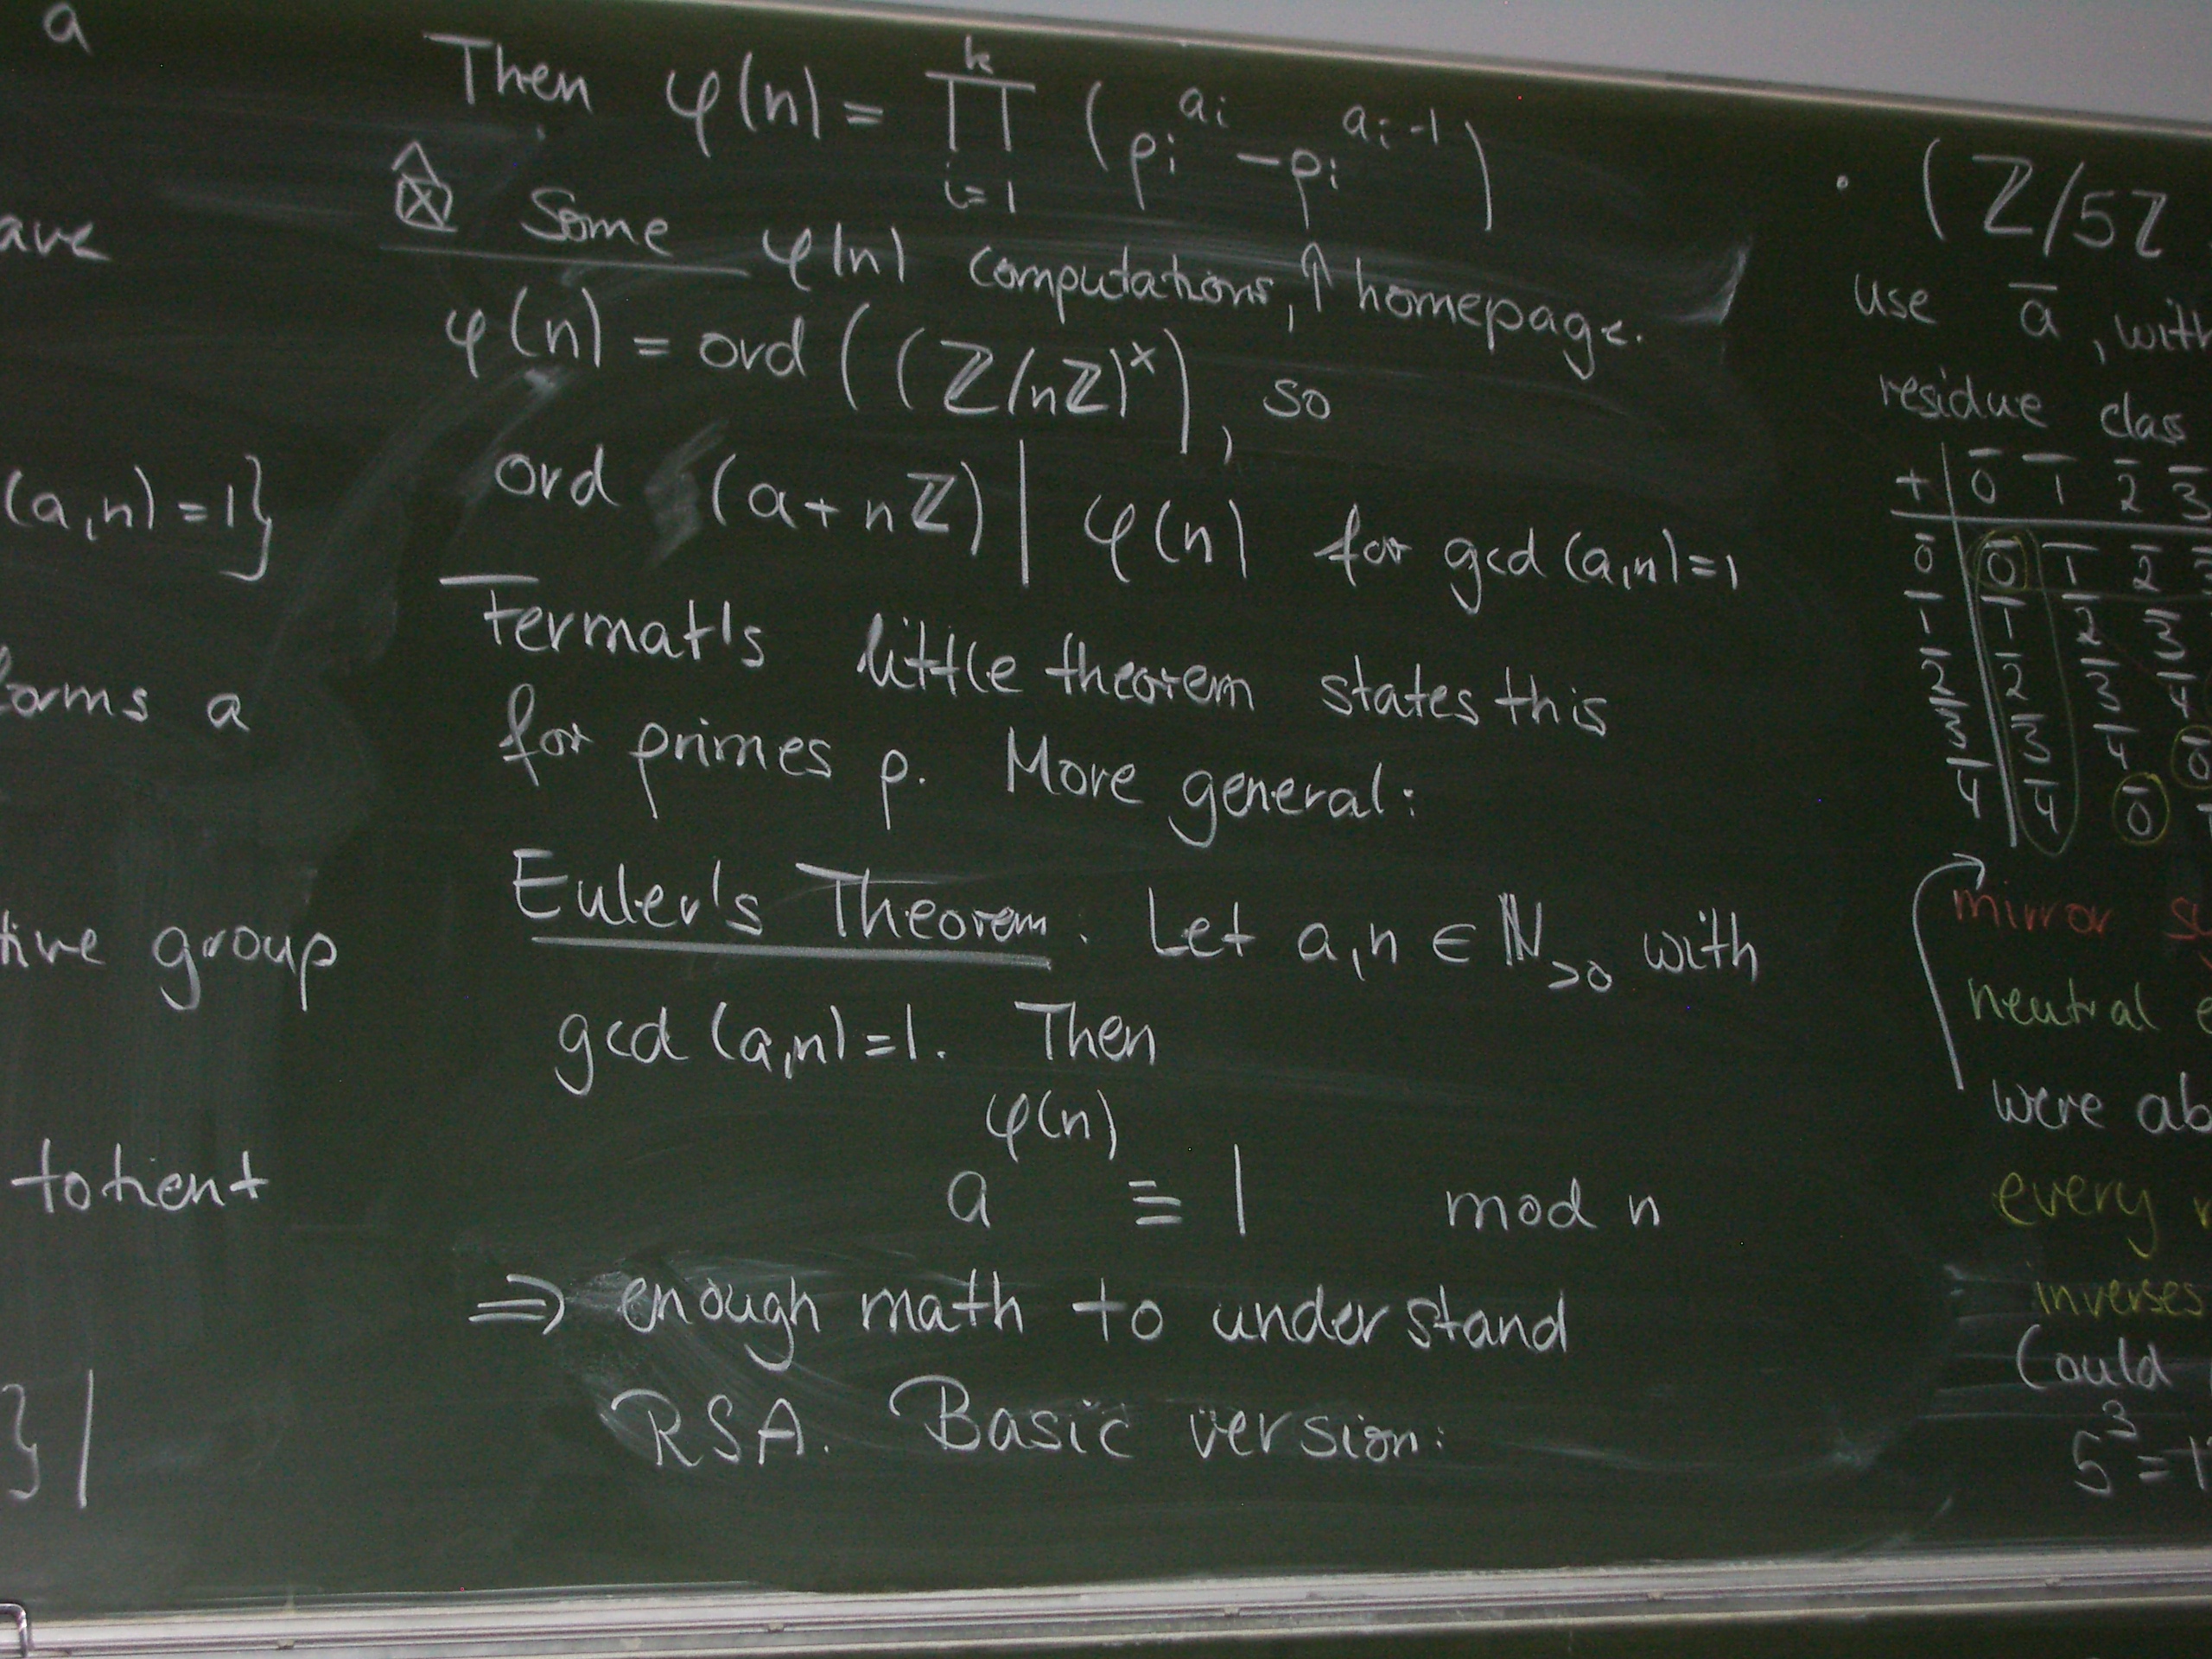 a
ave
(a,n)=1}
forms a
tive group
totient
}|
Then φ(n) = ∏_{i=1}^{k} (p_i^{a_i} - p_i^{a_i-1})
Some φ(n) computations, ↑ homepage.
φ(n) = ord((ℤ/nℤ)^×), so
ord (a+nℤ) | φ(n) for gcd(a,n)=1
Fermat's little theorem states this
for primes p. More general:
Euler's Theorem: Let a,n ∈ ℕ_{>0} with
gcd(a,n)=1. Then
a^{φ(n)} ≡ 1 mod n
⇒ enough math to understand
RSA. Basic version:
· (ℤ/5ℤ
use a̅, with
residue class
+ 0̅ 1̅ 2̅ 3̅
0̅ 0̅ 1̅ 2̅ 3̅
1̅ 1̅ 2̅ 3̅
2̅ 2̅ 3̅ 4̅
3̅ 3̅ 4̅ 0̅
4̅ 4̅ 0̅ 1̅
mirror
neutral
were
every
inverses
Could
5^3=1